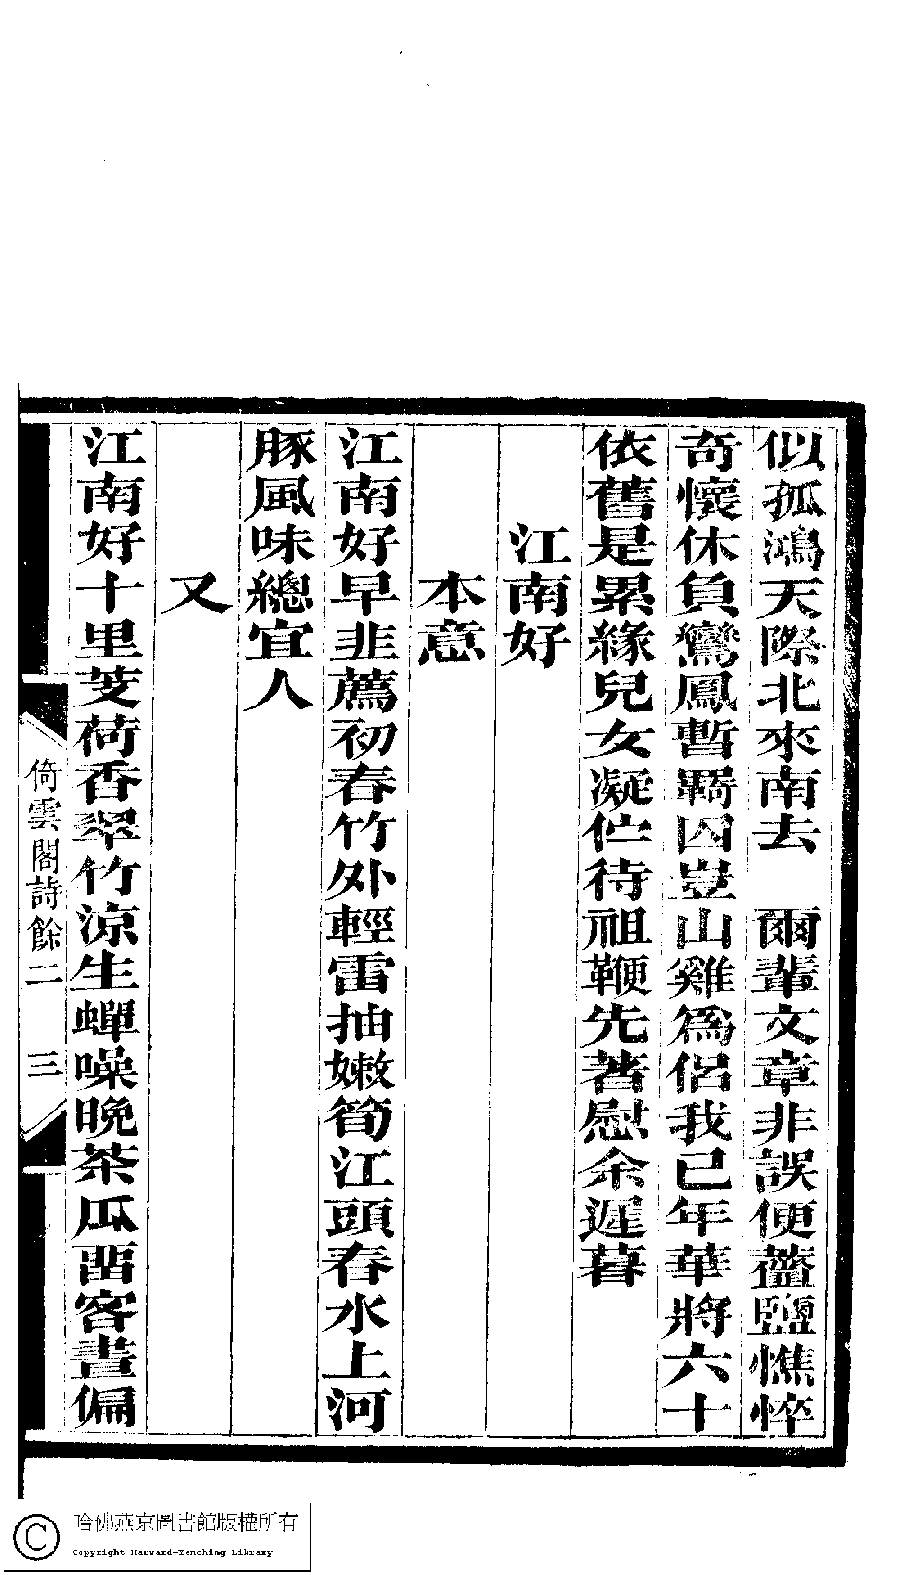 似孤鴻天際北來南去　爾輩文章非誤便虀鹽憔悴
奇懷休負鸞鳳暫羇囚豈山雞爲侶我已年華將六十
依舊是累緣兒女凝伫待祖鞭先著慰余遲暮
江南好
本意
江南好早韭薦初春竹外輕雷抽嫩筍江頭春水上河
豚風味總宜人
又
江南好十里芰荷香翠竹涼生蟬噪晚茶瓜畱客晝偏
倚雲閣詩餘二　三
哈佛燕京圖書館版權所有
Copyright Harvard-Yenching Library